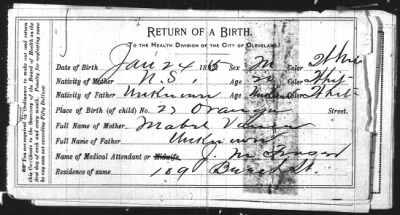 RETURN OF A BIRTH.
TO THE HEALTH DIVISION OF THE CITY OF CLEVELAND.
Date of Birth Jan' 24 188 Sex M Color White
Nativity of Mother N.S. Age Color Whit
Nativity of Father Unknown Age Whit
Place of Birth (of child) No. 27 Orange Street.
Full Name of Mother Mabel
Full Name of Father Unknown
Name of Medical Attendant or Midwife, J. M.
Residence of same 169 St.
You are required by Ordinance to make out and return
this Certificate to the Secretary of the Board of Health on the
first day of each and every month. Penalty for neglecting same
in any sum not exceeding Fifty Dollars.